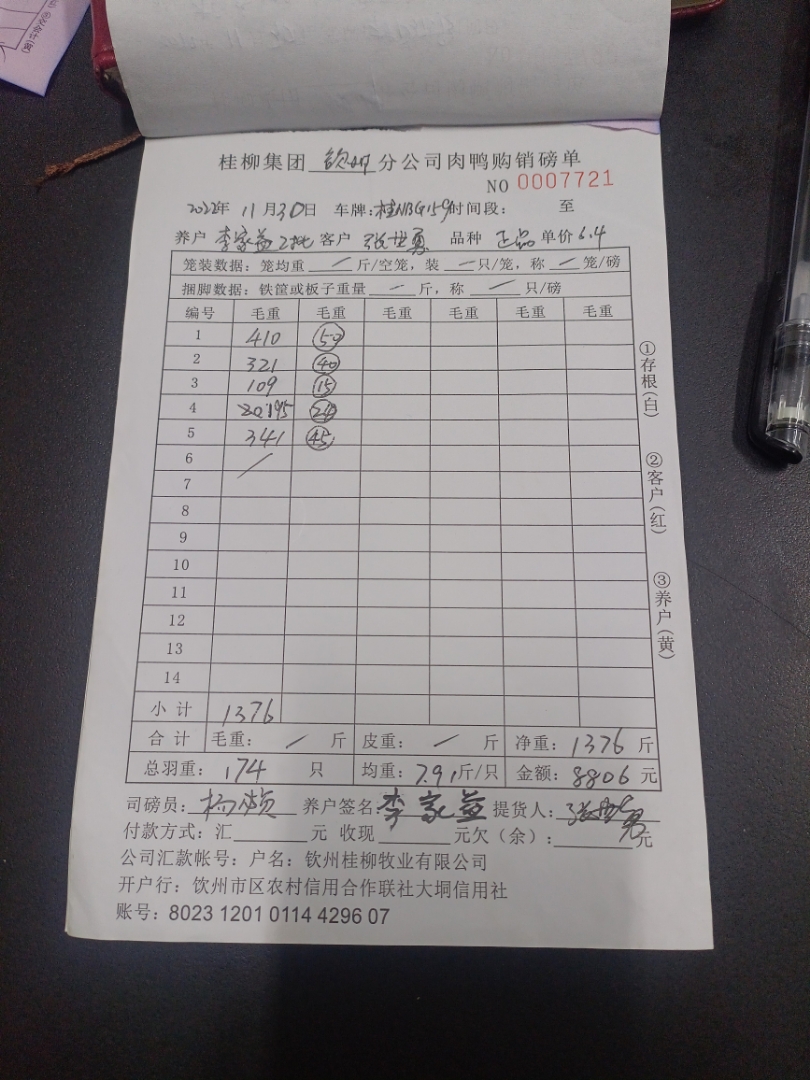 桂柳集团 钦州 分公司肉鸭购销磅单
NO 0007721
2022年 11月30日 车牌:桂NBG159 时间段: 至
养户 李家益2批 客户 张世勇 品种 正品 单价 6.4
笼装数据:笼均重 / 斤/空笼,装 一 只/笼,称 / 笼/磅
捆脚数据:铁筐或板子重量 一 斤,称 / 只/磅
编号 毛重 毛重 毛重 毛重 毛重 毛重
1 410 50
2 321 40
3 109 15
4 195 24
5 341 45
6 /
7
8
9
10
11
12
13
14
小计 1376
合计 毛重: / 斤 皮重: / 斤 净重: 1376 斤
总羽重: 174 只 均重: 7.91 斤/只 金额: 8806 元
司磅员: 杨 养户签名: 李家益 提货人: 张世勇
付款方式:汇 元 收现 元欠(余): 元
公司汇款帐号:户名:钦州桂柳牧业有限公司
开户行:钦州市区农村信用合作联社大垌信用社
账号:8023 1201 0114 4296 07
①存根(白)
②客户(红)
③养户(黄)